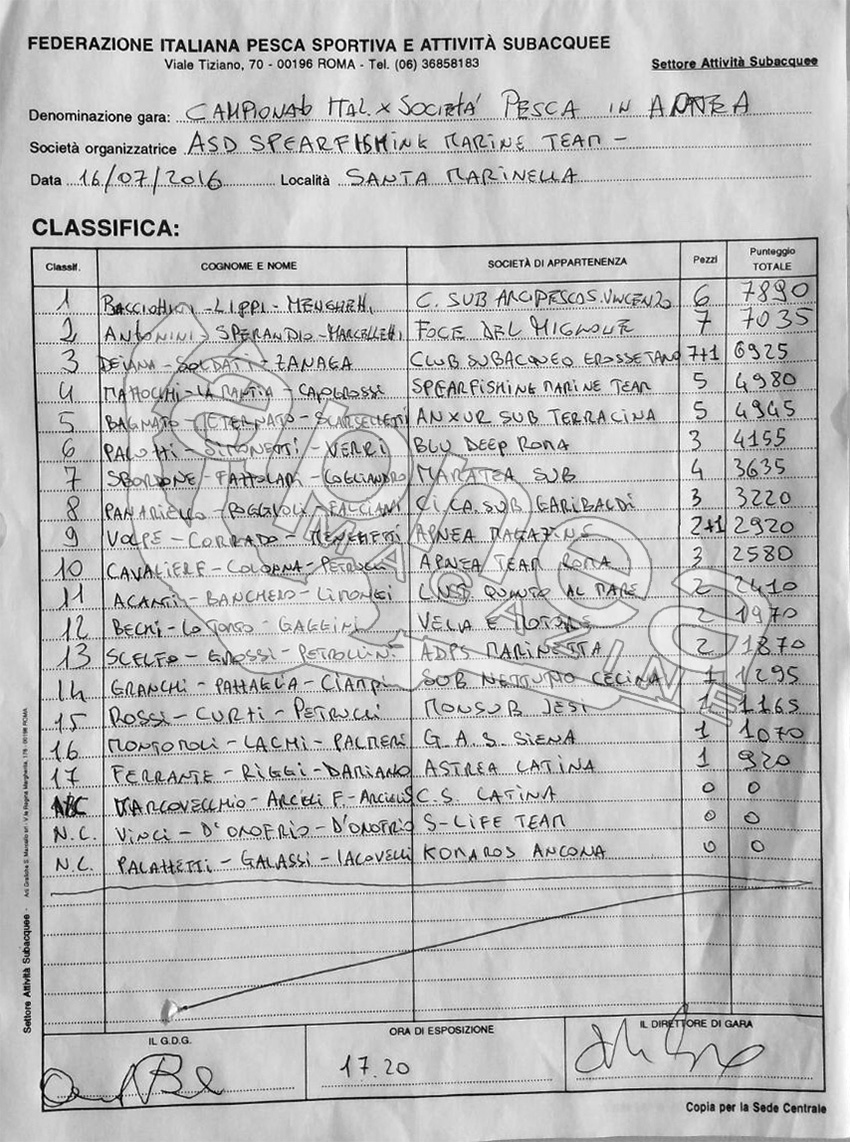 FEDERAZIONE ITALIANA PESCA SPORTIVA E ATTIVITÀ SUBACQUEE
Viale Tiziano, 70 - 00196 ROMA - Tel. (06) 36858183
Settore Attività Subacquee
Denominazione gara: CAMPIONATO ITAL. X SOCIETA' PESCA IN APNEA
Società organizzatrice ASD SPEARFISHING MARINE TEAM -
Data 16/07/2016 Località SANTA MARINELLA
CLASSIFICA:
Classif. COGNOME E NOME SOCIETÀ DI APPARTENENZA Pezzi Punteggio TOTALE
1 - LIPPI - C. SUB ARCIPESCO S. VINCENZO 6 7890
2 ANTONINI - SPERANDIO - MARCELLETTI FOCE DEL MIGNONE 7 7035
3 DEIANA - SOLDATI - ZANAGA CLUB SUBACQUEO GROSSETANO 7+1 6925
4 - LA MANTIA - CAPOGROSSI SPEARFISHING MARINE TEAM 5 4980
5 BAGNATO - - SCARSELLETTI ANXUR SUB TERRACINA 5 4945
6 - SIMONETTI - VERRI BLU DEEP ROMA 3 4155
7 SBORDONE - - COGLIANDRO MARATEA SUB 4 3635
8 PANARIELLO - POGGIOLI - FALCIANI CI.CA. SUB GARIBALDI 3 3220
9 VOLPE - CORRADO - MENEGHETTI APNEA MAGAZINE 2+1 2920
10 CAVALIERE - COLONNA - PETRUCCI APNEA TEAM ROMA 3 2580
11 - BANCHERO - LIMONGI QUINTO AL MARE 2 2410
12 BECHI - LO TORTO - GAGGINI VELA E MOTORE 2 1970
13 SCELFO - GROSSI - PETROLLINI ADPS MARINETTA 2 1870
14 GRANCHI - PATTAGLIA - CIAMPI SUB NETTUNO CECINA 1 1295
15 ROSSI - CURTI - PETRUCCI MONSUB JESI 1 1165
16 MONTOPOLI - LACHI - PALMERI G.A.S. SIENA 1 1070
17 FERRANTE - RIGGI - DARIANO ASTREA LATINA 1 920
MARCOVECCHIO - ARCIELI F. - C.S. LATINA 0 0
N.C. VINCI - D'ONOFRIO - D'ONOFRIO S-LIFE TEAM 0 0
N.C. - GALASSI - IACOVELLI KOMAROS ANCONA 0 0
apnea
MAGAZINE
Settore Attività Subacquee
IL G.D.G. ORA DI ESPOSIZIONE IL DIRETTORE DI GARA
17.20
Copia per la Sede Centrale